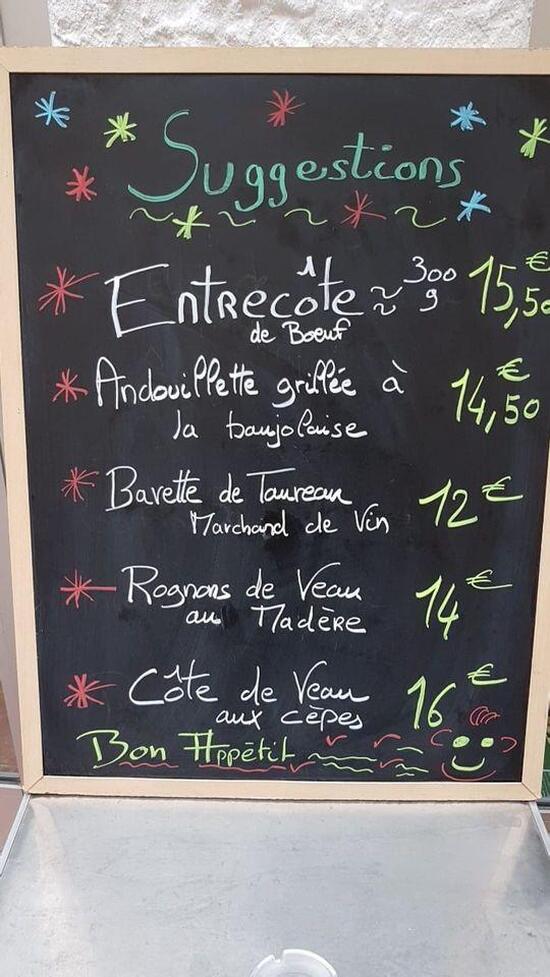 Suggestions
Entrecôte ≈ 300 g 15,50 €
de Boeuf
Andouillette grillée à 14,50 €
la baujolaise
Bavette de Taureau 12 €
Marchand de Vin
Rognons de Veau 14 €
au Madère
Côte de Veau 16 €
aux cèpes
Bon Appétit